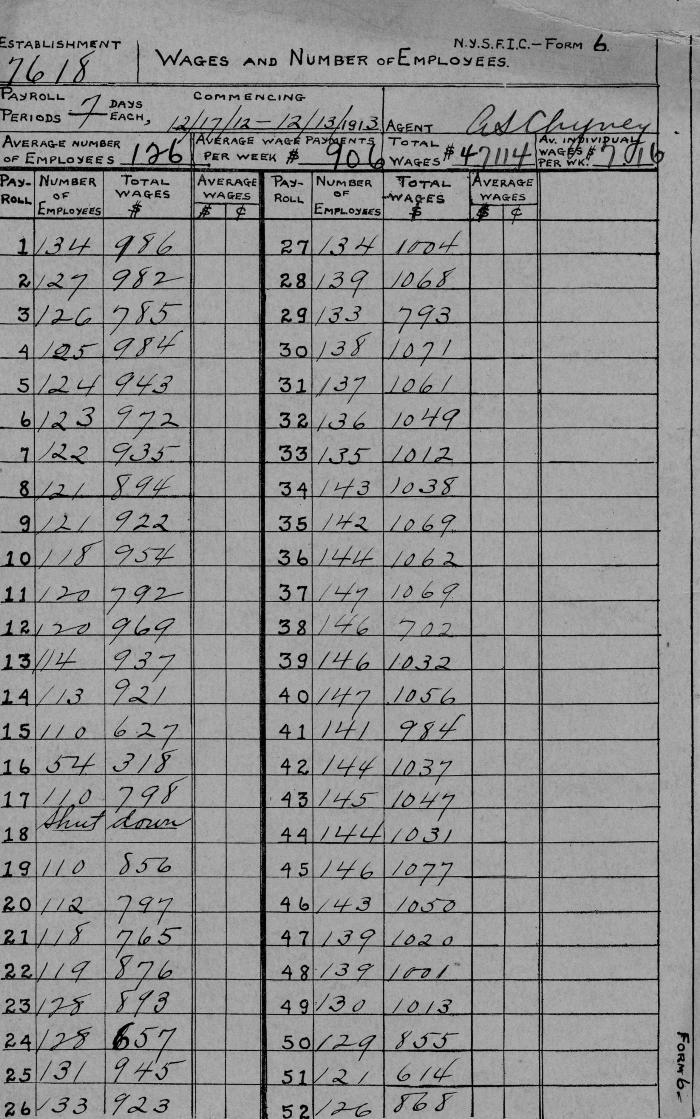 ESTABLISHMENT
7618
WAGES AND NUMBER OF EMPLOYEES.
N.Y.S.F.I.C. – FORM 6.
PAYROLL PERIODS 7 DAYS EACH,
COMMENCING
12/17/12 – 12/13/1913
AGENT
AVERAGE NUMBER OF EMPLOYEES 126
AVERAGE WAGE PAYMENTS PER WEEK $ 906
TOTAL WAGES $ 47114
AV. INDIVIDUAL WAGES PER WK. $ 7.16
PAY-ROLL NUMBER OF EMPLOYEES TOTAL WAGES $ AVERAGE WAGES $ ¢ PAY-ROLL NUMBER OF EMPLOYEES TOTAL WAGES $ AVERAGE WAGES $ ¢
1 134 986 27 134 1004
2 127 982 28 139 1068
3 126 785 29 133 793
4 125 984 30 138 1071
5 124 943 31 137 1061
6 123 972 32 136 1049
7 122 935 33 135 1012
8 121 894 34 143 1038
9 121 922 35 142 1069
10 118 954 36 144 1062
11 120 792 37 147 1069
12 120 969 38 146 702
13 114 937 39 146 1032
14 113 921 40 147 1056
15 110 627 41 141 984
16 54 318 42 144 1037
17 110 798 43 145 1047
18 Shut down 44 144 1031
19 110 856 45 146 1077
20 112 797 46 143 1050
21 118 765 47 139 1020
22 119 876 48 139 1001
23 128 893 49 130 1013
24 128 657 50 129 855
25 131 945 51 121 614
26 133 923 52 126 868
FORM 6–